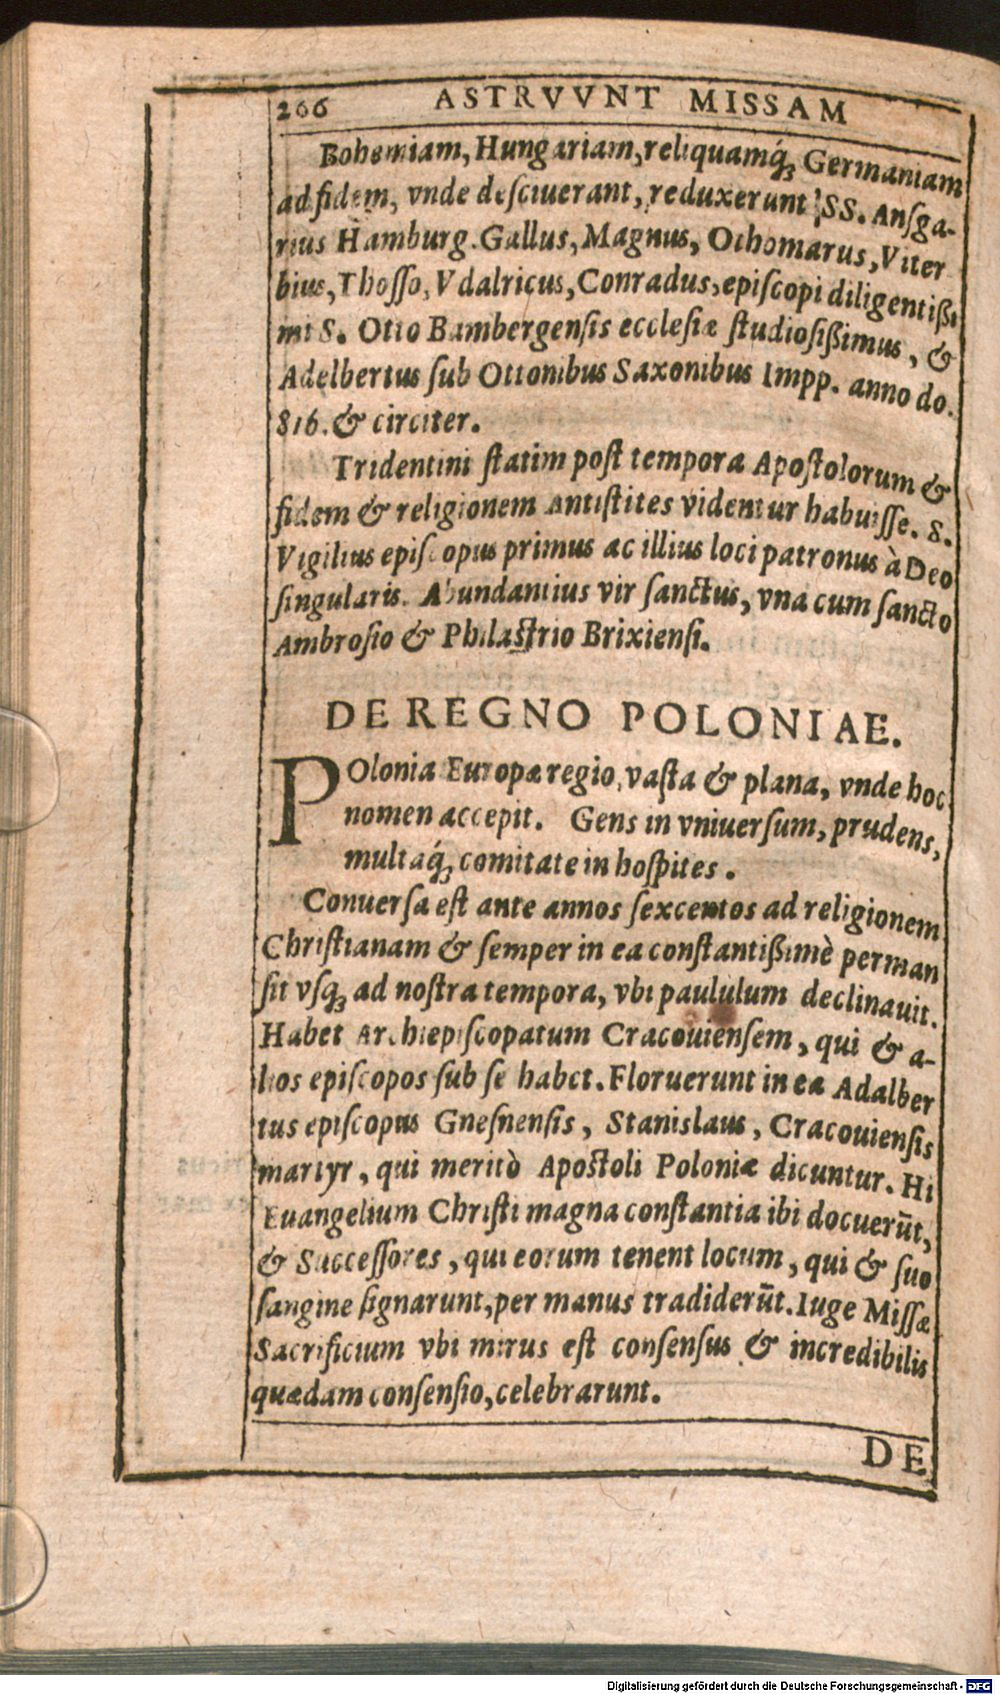 266 ASTRVVNT MISSAM
Bohemiam, Hungariam, reliquamq́ꝫ Germaniam
ad fidem, vnde desciuerant, reduxerunt SS. Anſga-
rius Hamburg. Gallus, Magnus, Othomarus, Viter
bius, Thoſſo, Vdalricus, Conradus, epiſcopi diligentißi
mi S. Otto Bambergenſis eccleſiæ ſtudioſißimus, &
Adelbertus ſub Ottonibus Saxonibus Impp. anno do.
816. & circiter.
Tridentini ſtatim poſt tempora Apoſtolorum &
fidem & religionem Antiſtites videntur habuiſſe. S.
Vigilius epiſcopus primus ac illius loci patronus à Deo
ſingularis. Abundantius vir ſanctus, vna cum ſancto
Ambroſio & Philaſtrio Brixienſi.
DE REGNO POLONIAE.
POlonia Europæ regio, vaſta & plana, vnde hoc
nomen accepit. Gens in vniuerſum, prudens,
multaq́ꝫ comitate in hoſpites.
Conuerſa eſt ante annos ſexcentos ad religionem
Chriſtianam & ſemper in ea conſtantißimè perman
ſit vſqꝫ ad noſtra tempora, vbi paululum declinauit.
Habet Archiepiſcopatum Cracouienſem, qui & a-
lios epiſcopos ſub ſe habet. Floruerunt in ea Adalber
tus epiſcopus Gneſnenſis, Stanislaus, Cracouienſis
martyr, qui meritò Apoſtoli Poloniæ dicuntur. Hi
Euangelium Chriſti magna conſtantia ibi docuerūt,
& Succeſſores, qui eorum tenent locum, qui & ſuo
ſangine ſignarunt, per manus tradiderūt. Iuge Miſſæ
Sacrificium vbi mirus eſt conſenſus & incredibilis
quædam conſenſio, celebrarunt.
DE
Digitalisierung gefördert durch die Deutsche Forschungsgemeinschaft - DFG